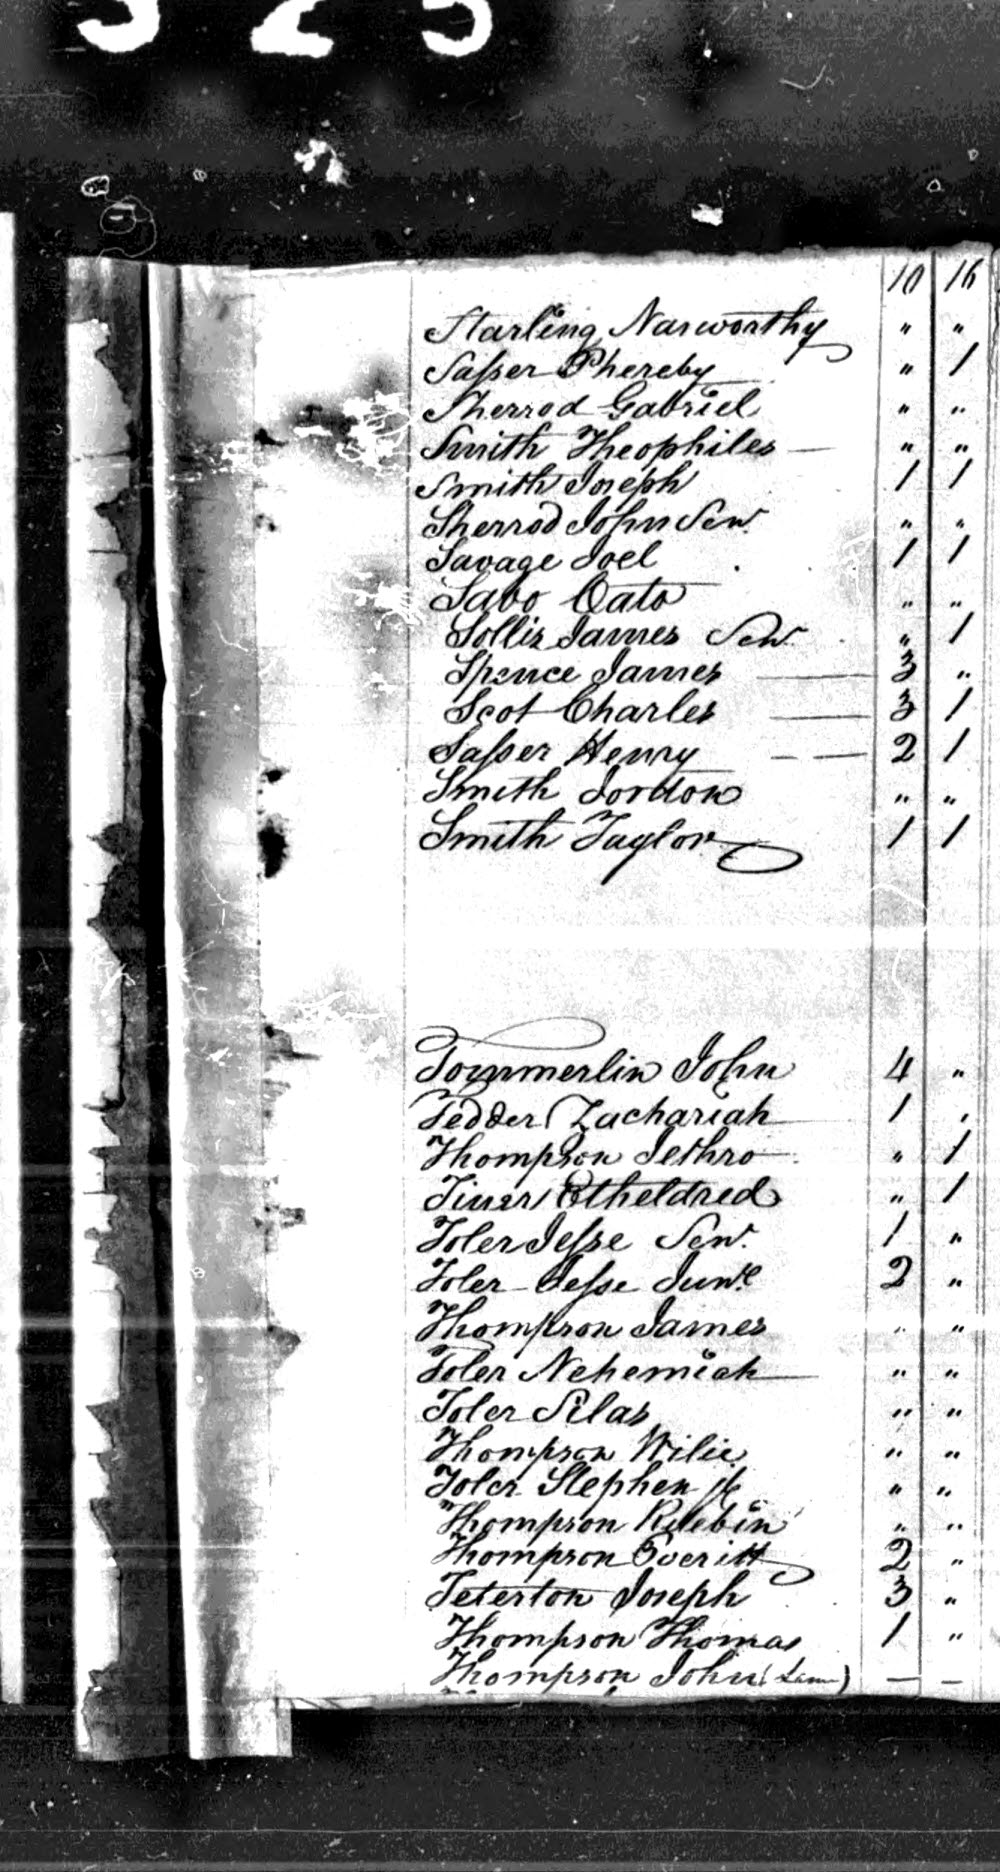 525
10 16
Starling Nasworthy " "
Saſser Phereby " 1
Sherrod Gabriel " "
Smith Theophiles — " "
Smith Joseph 1 1
Sherrod John Senr " "
Savage Joel 1 1
Sabo Cato " "
Sollis James Senr " 1
Spence James — 3 "
Scot Charles — 3 1
Saſser Henry — — 2 1
Smith Jordon " "
Smith Taylor 1 1
Tommerlin John 4 "
Tedder Zachariah 1 "
Thompson Jethro " 1
Tiner Etheldred " 1
Toler Jeſse Senr. 1 "
Toler Jeſse Junr 2 "
Thompson James " "
Toler Nehemiah " "
Toler Silas " "
Thompson Wilie " "
Toler Stephen jr " "
Thompson " "
Thompson Everitt 2 "
Teterton Joseph 3 "
Thompson Thomas 1 "
Thompson John — —